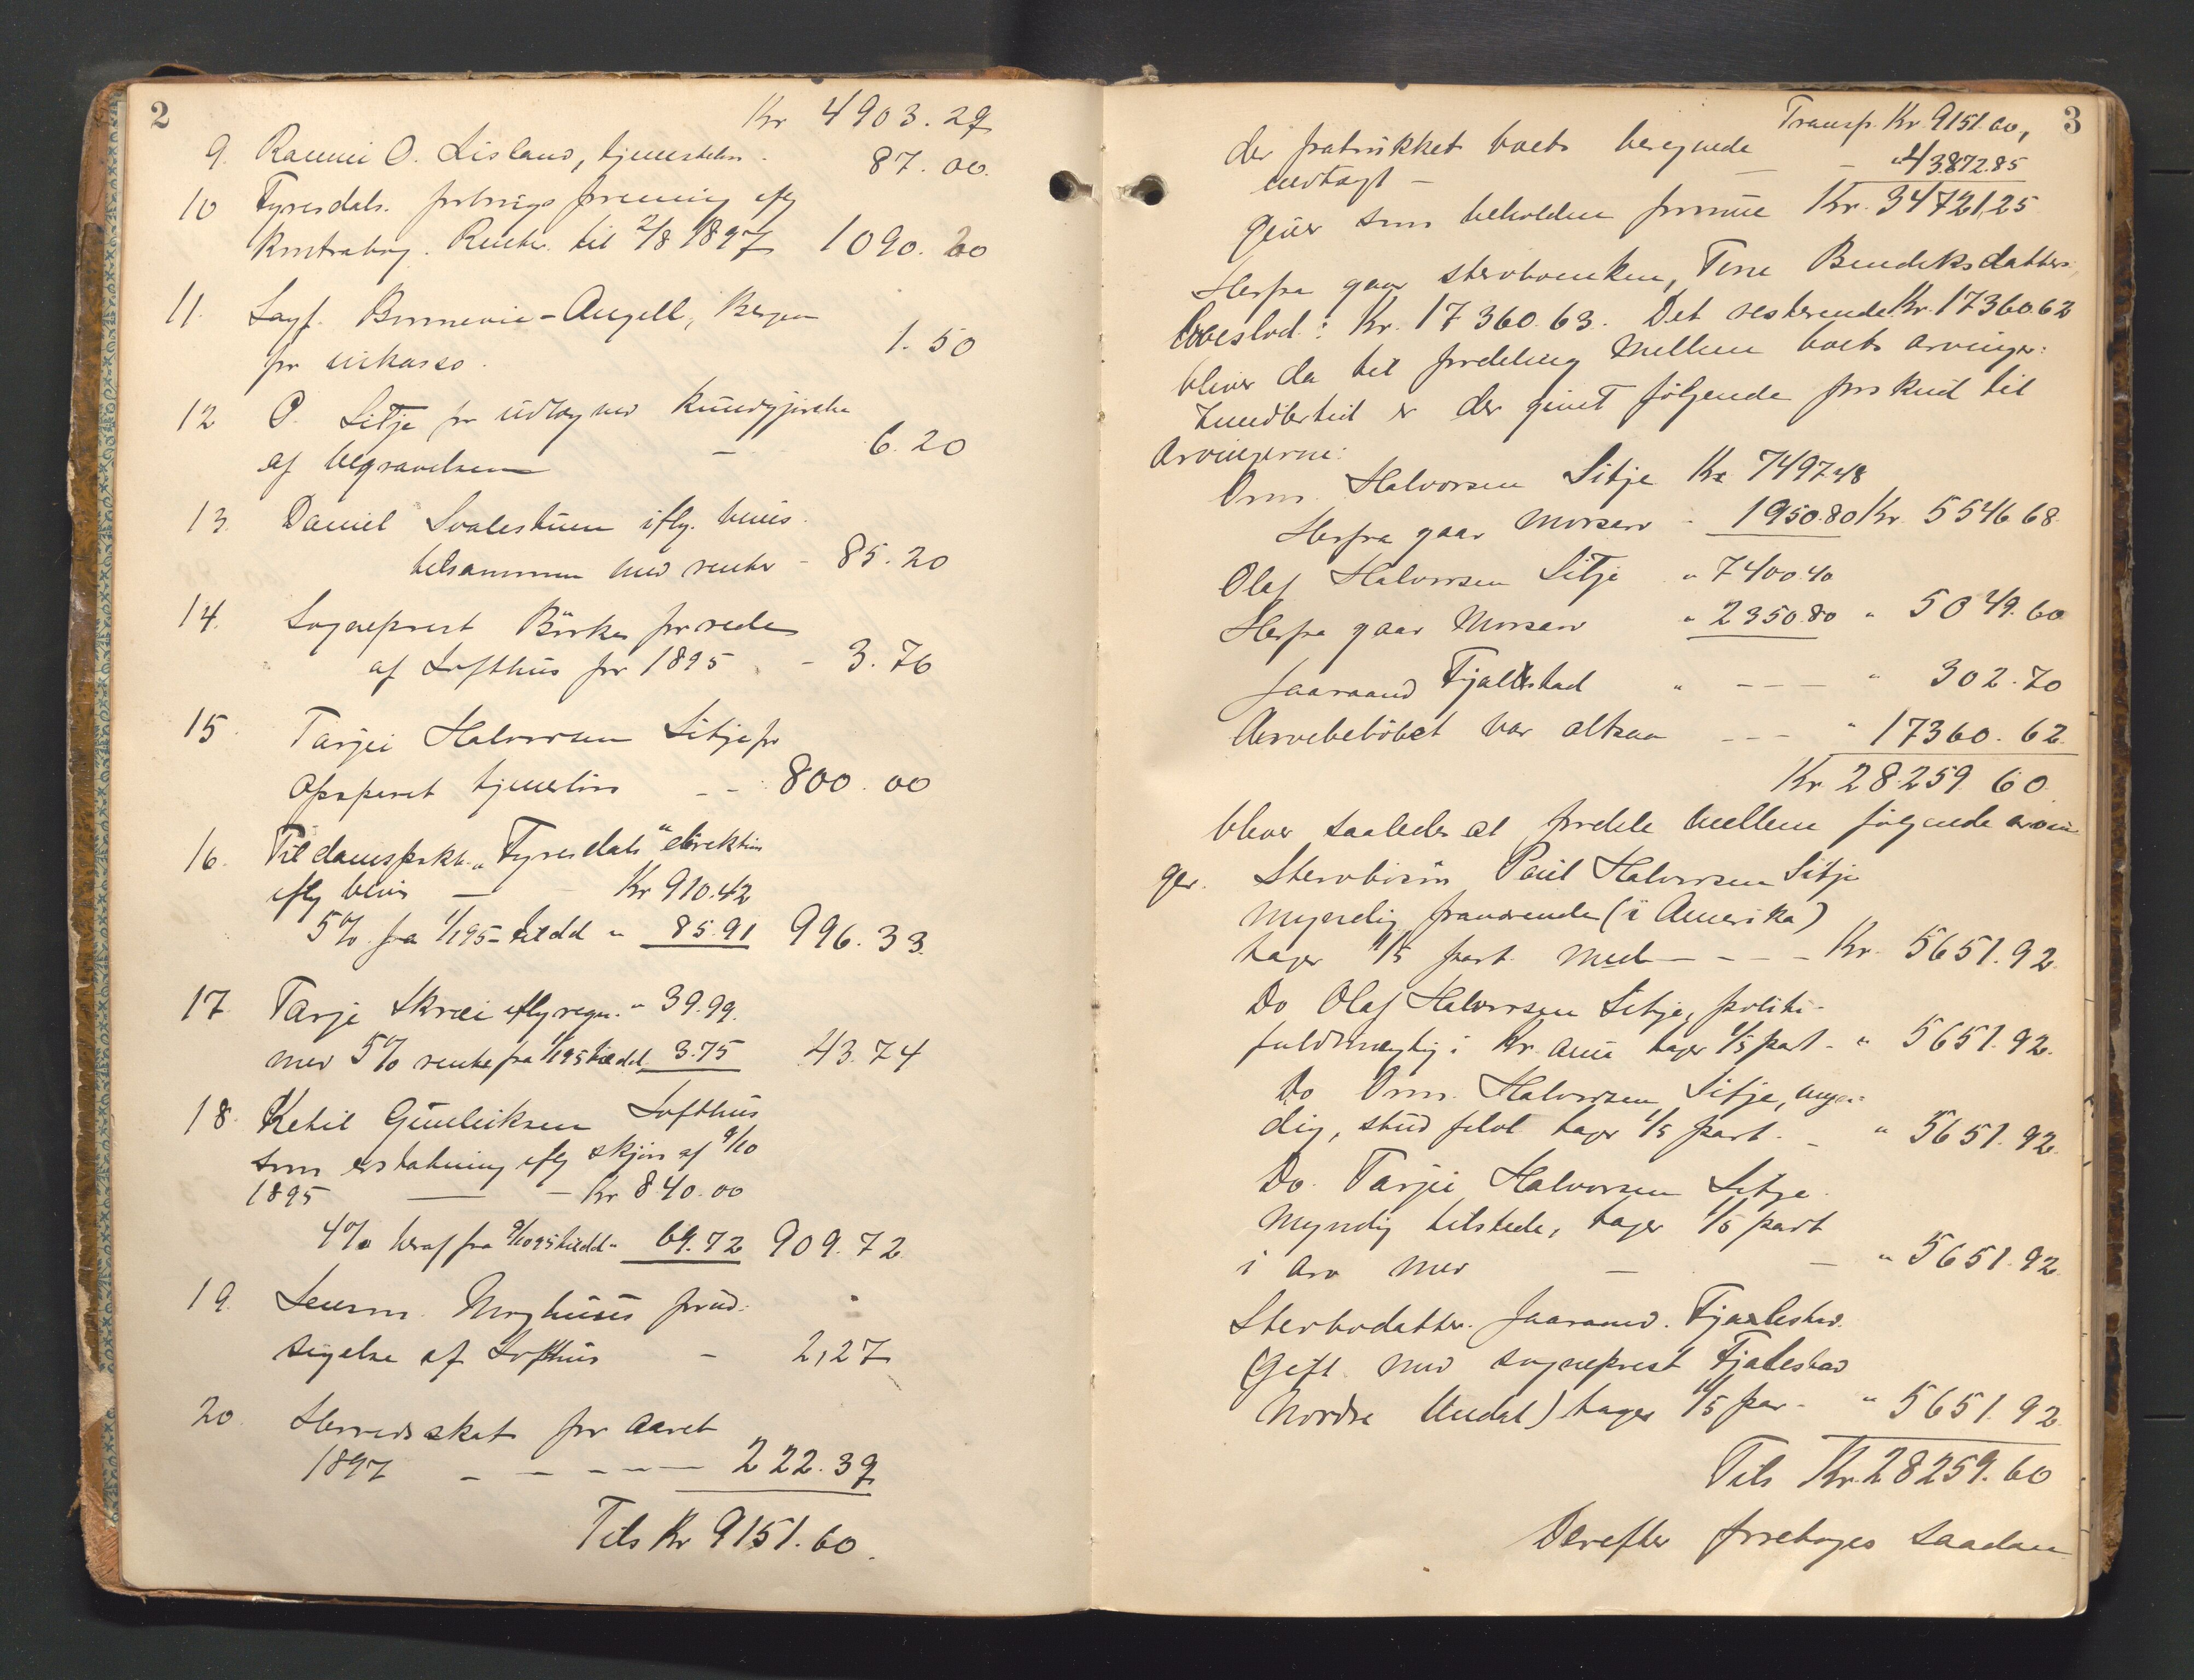 2
Kr 4903.29
9. Raunei O. Lisland, tjenesteløn. 87.00.
10 Fyresdals. forbrugsforening iflg
Kontrabog. Renter til 2/8 1897 1090.20
11. Sagf. Bonnevie-Angell, Bergen
for inkasso. 1.50
12 O. Sitje for udlæg ved kundgjørelse
af begravelsen — 6.20
13. Daniel Svalestuen iflg. bevis.
tilsammen med renter - 85.20
14. Sogneprest Börke for rede
af Lofthus for 1895 - 3.76
15. Tarjei Halvorsen Sitje for
opsparet tjenerløn - - 800.00
16. Til dampskb. "Fyresdals" direktion
iflg bevis — Kr 910.42
5% fra 1/1 95 - til dd " 85.91 996.33.
17 Tarje Skræi iflg regn. " 39.99.
med 5% rente fra 1/1 95 til dd. 3.75 43.74
18. Ketil Gunleiksen Lofthus
som erstatning iflg skjøn af 9/10
1895 — - Kr 840.00
4% heraf fra 9/10 95 til dd " 69.72 909.72.
19. Lensm. Moghuus for ud-
sigelse af Lofthus - 2,27
20. Herredsskat for aaret
1897 - - - - - 222.39
Tils Kr 9151.60.
3
Transp. Kr. 9151.60,
der fratrukket boets beregnede
indtægt — — " 43872.85
giver som beholden formue Kr. 34721,25
Herfra gaar sterboenken, Tone Bendiksdatters
Boeslod: Kr. 17360.63. Det resterende Kr. 17360.62
bliver da til fordeling mellem boets arvinger:
Imidlertid er der givet følgende forskud til
Arvingerne:
Orm Halvorsen Sitje Kr 7497.48
Herfra gaar Morsarv - 1950.80 Kr. 5546.68.
Olaf Halvorsen Sitje " 7400.40
Herfra gaar Morsarv " 2350.80 " 5049.60
Jaaraand Fjalestad " - — — " 302.70
Arvebeløbet var altsaa - — - " 17360.62.
Kr 28259.60.
bliver saaledes at fordele mellem følgende arvin
ger. Sterbosøn Paul Halvorsen Sitje
Myndig fraværende (i Amerika)
tager 1/5 part med - - - - Kr. 5651.92.
Do Olaf Halvorsen Sitje, politi-
fuldmægtig i Kr. ania tager 1/5 part - " 5651.92.
Do Orm. Halvorsen Sitje, myn-
dig, stud filol. tager 1/5 part. - " 5651.92.
Do. Tarjei Halvorsen Sitje.
Myndig tilstede, tager 1/5 part
i arv med — — " 5651.92
Sterbodatter. Jaaraand. Fjalestad.
(Gift med sogneprest Fjalestad
Nordre Undal) tager 1/5 par - " 5651.92.
Tils Kr. 28259.60
Derefter foretages saadan